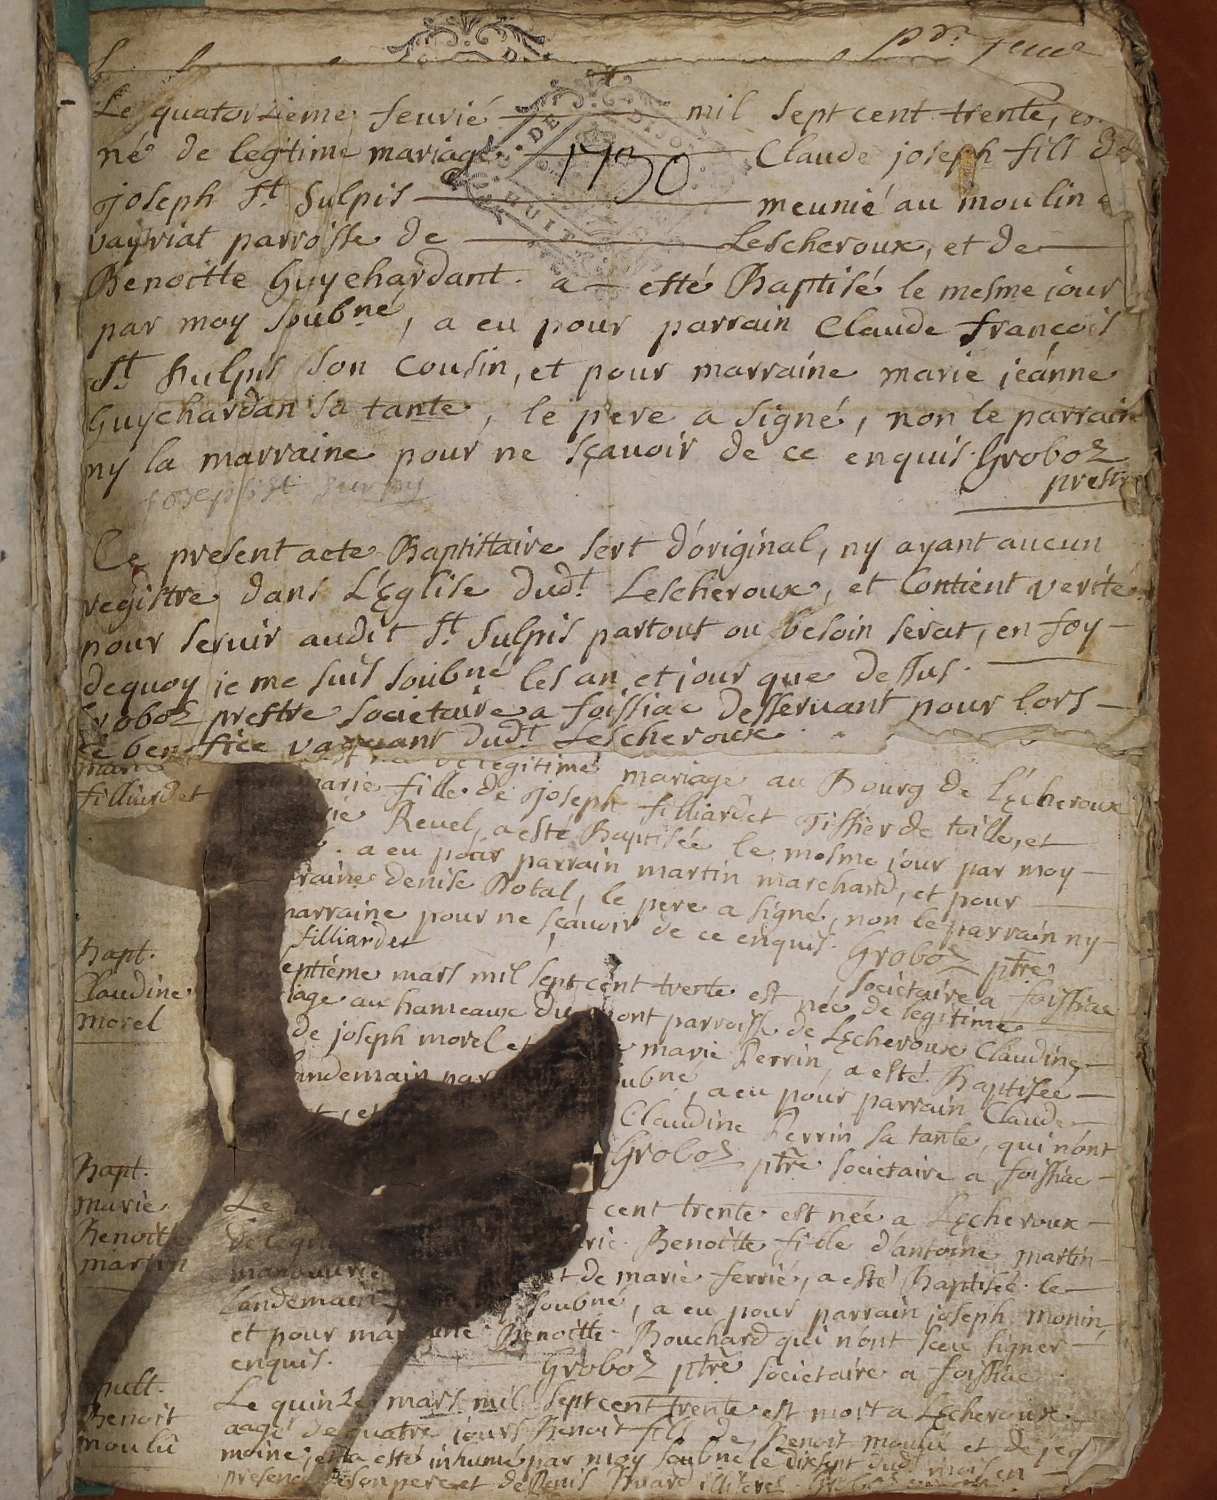 Le quatorzieme feuvié mil sept cent trente, es
né de legitime mariage 1730 Claude joseph fill de
joseph St Sulpis meunié au moulin
vayriat parroisse de Lescheroux, et de
Benoitte Guychardant. a esté Baptisé le mesme jour
par moy soubné, a eu pour parrain Claude françois
St Sulpis son Cousin, et pour marraine marie jeánne
Guychardan sa tante, le pere a signé, non le parrain
ny la marraine pour ne sçavoir de ce enquis. Groboz
prestre
joseph st surpy
Ce present acte Baptistaire sert d'original, ny ayant aucun
registre dans L'Église dudt Lescheroux, et Contient verité
pour seruir audit St Sulpis partout ou besoin serat, en foy
dequoy je me suis soubné les an et jour que dessus.
Groboz prestre societaire a foissiac desseruant pour lors
le benefice vaquant dudt Lescheroux.
marie legitime mariage au Bourg de Lécheroux
filliardet marie fille de joseph filliardet tissier de toille, et
Reuel, a esté Baptisée le mesme jour par moy
. a eu pour parrain martin marchand, et pour
raine denise Botal, le pere a signé, non le parrain ny
marraine pour ne sçauoir de ce enquis. Groboz ptre
filliardet societaire a foissiac
Bapt.
Claudine
morel
septiéme mars mil sept cent trente est née de légitime
iage au hameaux du mont parroisse de Lécheroux Claudine
de joseph morel et marie Perrin, a esté Baptisée
landemain par soubné, a eu pour parrain Claude
et Claudine Perrin sa tante, qui n'ont
Groboz ptre societaire a foissiac
Bapt.
marie
Benoitte
martin
Le cent trente est née a Lécheroux
de marie Benoitte fille d'antoine martin
et de marie ferrié, a esté Baptisée le
Landemain soubné, a eu pour parrain joseph monin,
et pour marraine Benoitte Bouchard qui n'ont sceu signer
enquis. Groboz ptre societaire a foissiac
pult.
Benoit
moulû
Le quinze mars mil sept cent trente est mort a Lécheroux
aagé de quatre jours Benoit fils de Benoit moulû et de
moine, et a esté inhumé par moy soubné le disept dudt mois en
presence de son pere et de Denis Buard illiteres.